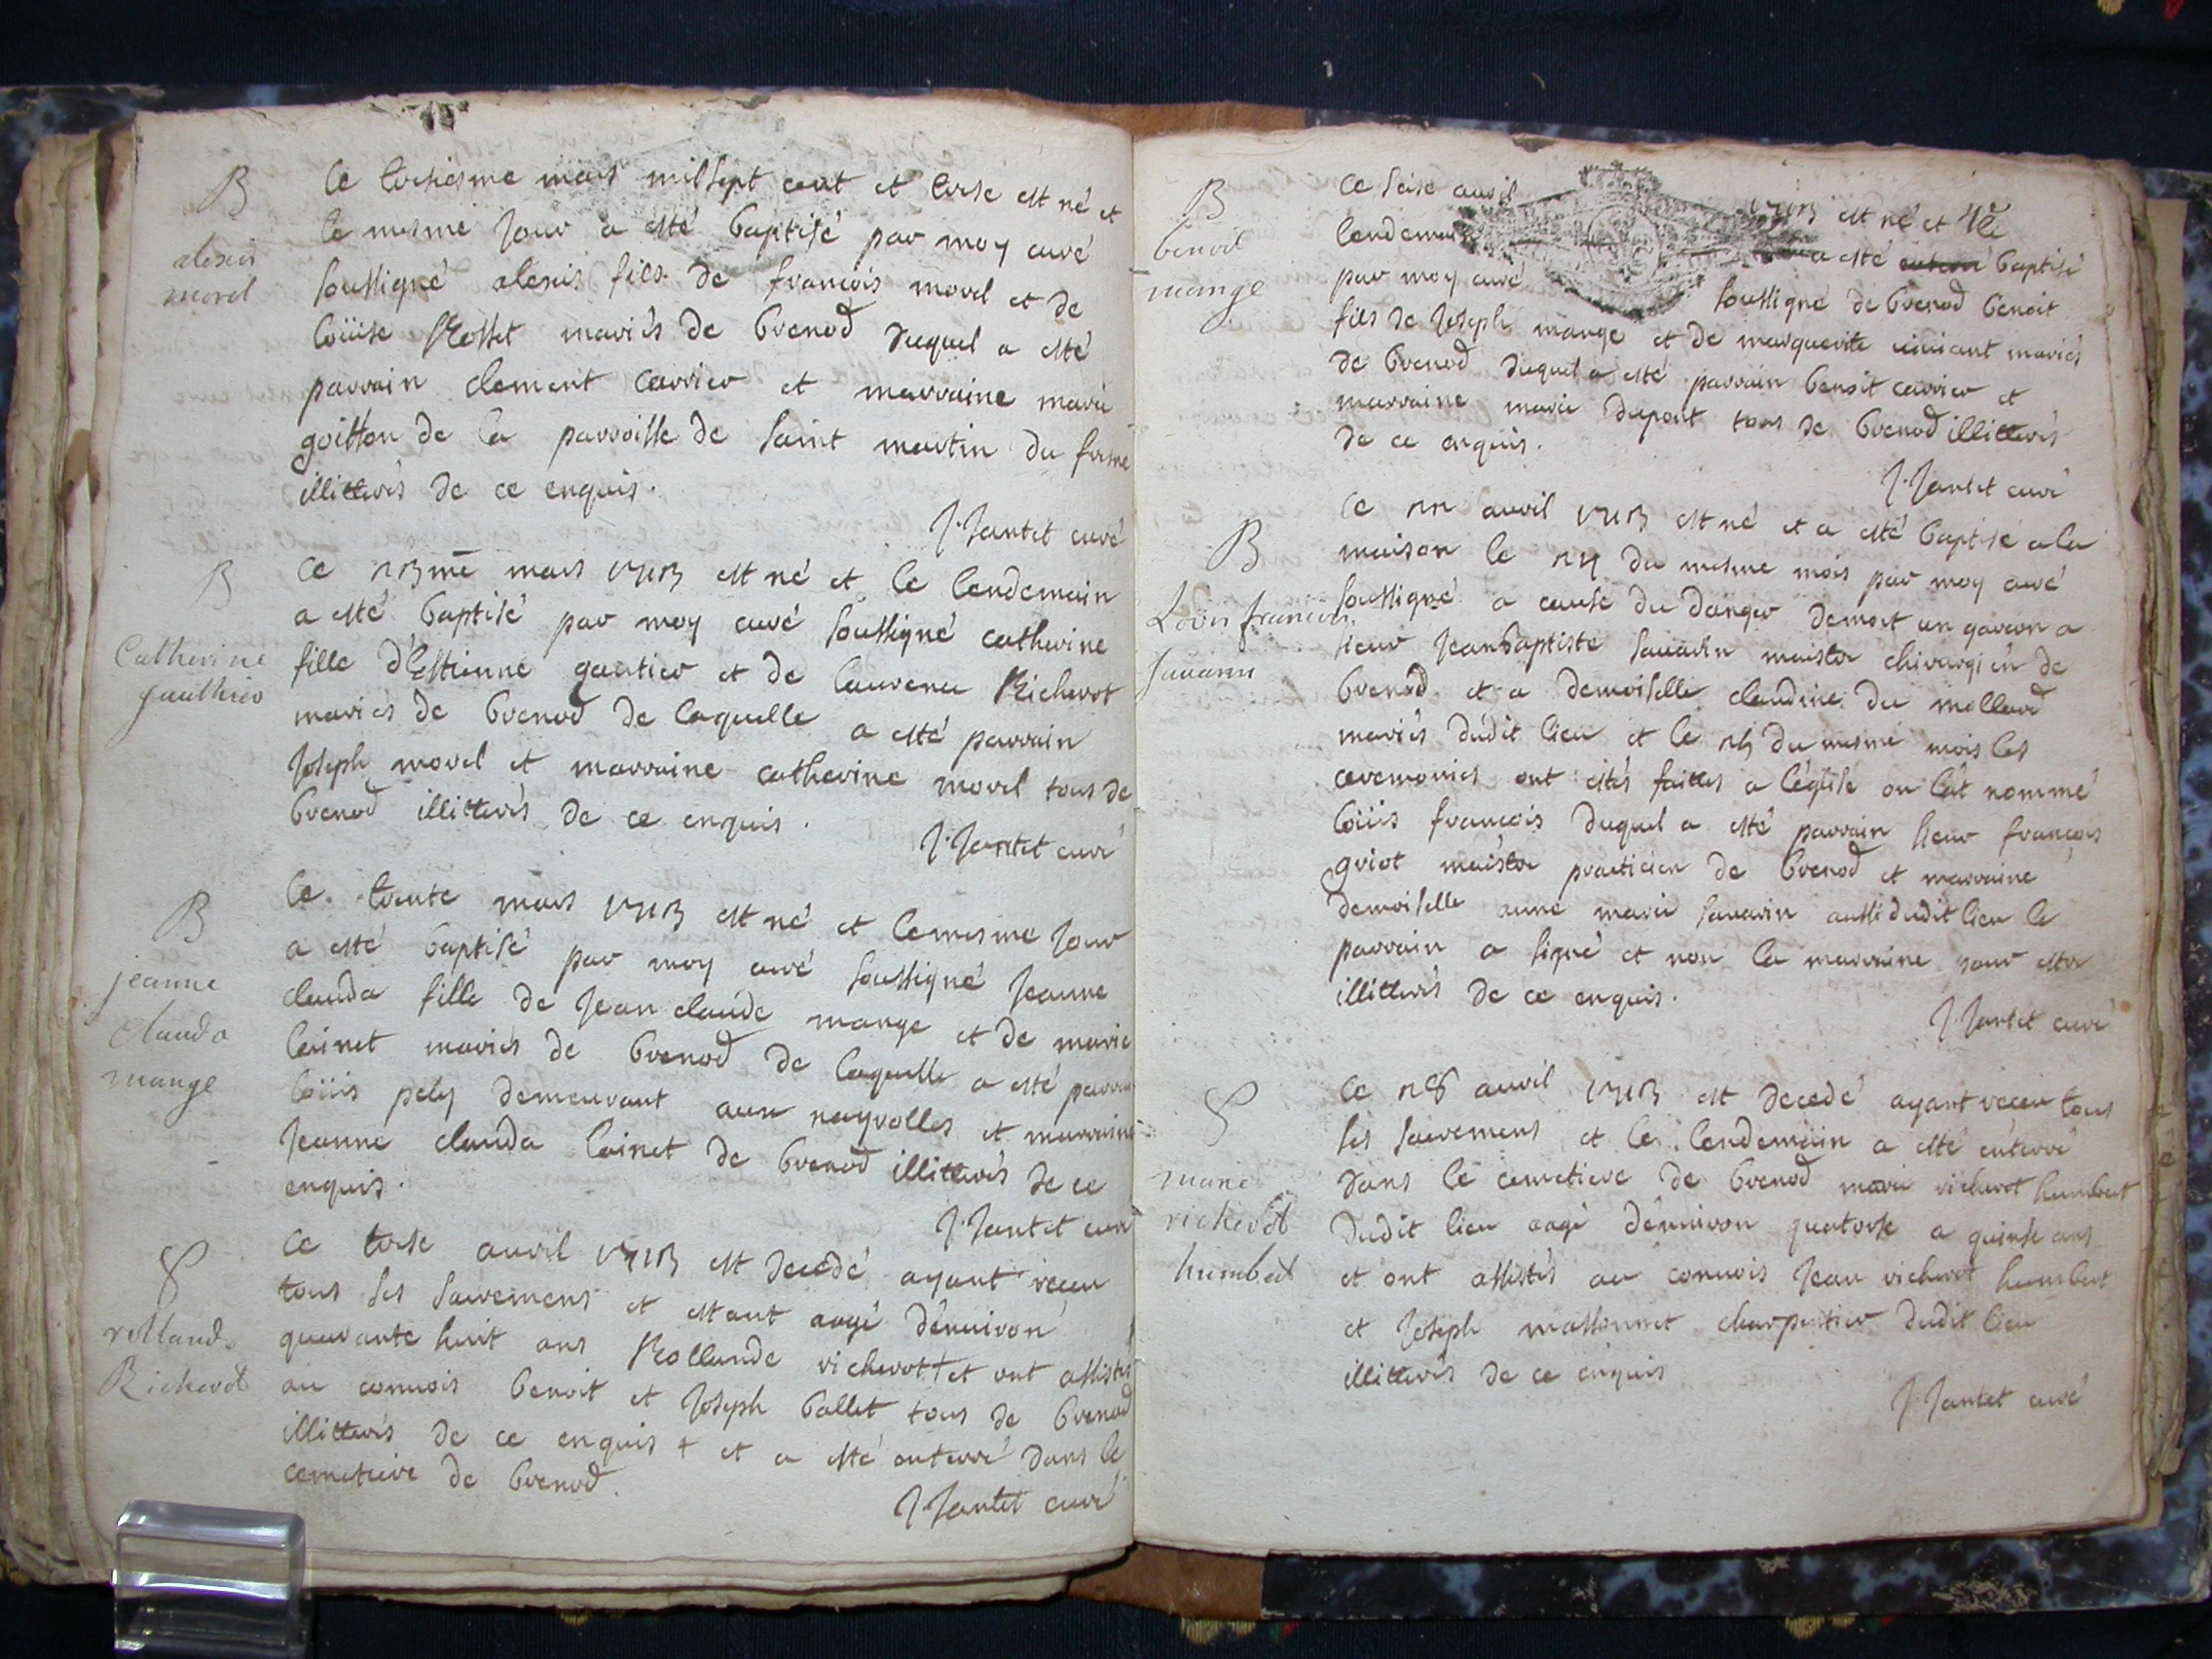 B
alexis
morel
Ce treisiesme mars mil sept cent et treise est né et
le mesme jour a esté baptisé par moy curé
soussigné alexis fils de francois morel et de
loüise Rosset mariés de brenod duquel a esté
parrain clement carrier et marraine marie
goitton de la parroisse de saint martin du fresne
illitterés de ce enquis.
J. Jantet curé
B
Catherine
gauthier
Ce 23me mars 1713 est né et le lendemain
a esté baptisé par moy curé soussigné catherine
fille d'Estienne gautier et de laurence Richerot
mariés de brenod de laquelle a esté parrain
Joseph morel et marraine catherine morel tous de
brenod illitterés de ce enquis.
J. Jantet curé
B
jeanne
clauda
mange
Ce trente mars 1713 est né et le mesme jour
a esté baptisé par moy curé soussigné Jeanne
clauda fille de Jean claude mange et de marie
loinet mariés de brenod de laquelle a esté parrain
loüis pely demeurant aux neyrolles et marraine
Jeanne clauda loinet de brenod illitterés de ce
enquis.
J. Jantet curé
S
rolland
Richerot
Ce treise auril 1713 est decedé ayant receu
tous ses sacremens et estant aagé d'enuiron
quarante huit ans Rollande richerot + et ont assistés
au conuois benoit et Joseph ballet tous de brenod
illitterés de ce enquis + et a esté enterré dans le
cemetiere de brenod.
J. Jantet curé
B
benoit
mange
Ce seise auril 1713 est né et le
lendemain a esté baptisé
par moy curé soussigné de brenod benoit
fils de Joseph mange et de marguerite uiuiant mariés
de brenod duquel a esté parrain benoit carrier et
marraine marie dupont tous de brenod illitterés
de ce enquis.
J. Jantet curé
B
Loüis francois
sauarin
Ce 22 auril 1713 est né et a esté baptisé a la
maison le 24 du mesme mois par moy curé
soussigné a cause du danger de mort un garcon a
sieur Jean baptiste sauarin maistre chirurgien de
brenod et a demoiselle claudine du mollard
mariés dudit lieu et le 25 du mesme mois les
ceremonies ont estés faittes a l'eglise on l'at nommé
loüis francois duquel a esté parrain sieur francois
griot maistre practicien de brenod et marraine
demoiselle anne marie sauarin aussi dudit lieu le
parrain a signé et non la marraine pour estre
illitterés de ce enquis.
J. Jantet curé
S
marie
richerot
humbert
Ce 28 auril 1713 est decedé ayant receu tous
ses sacremens et le lendemain a esté enterré
dans le cemetiere de brenod marie richerot humbert
dudit lieu aagé d'enuiron quatorse a quinse ans
et ont assistés au conuois Jean richerot humbert
et Joseph massonnet charpentier dudit lieu
illitterés de ce enquis
J. Jantet curé